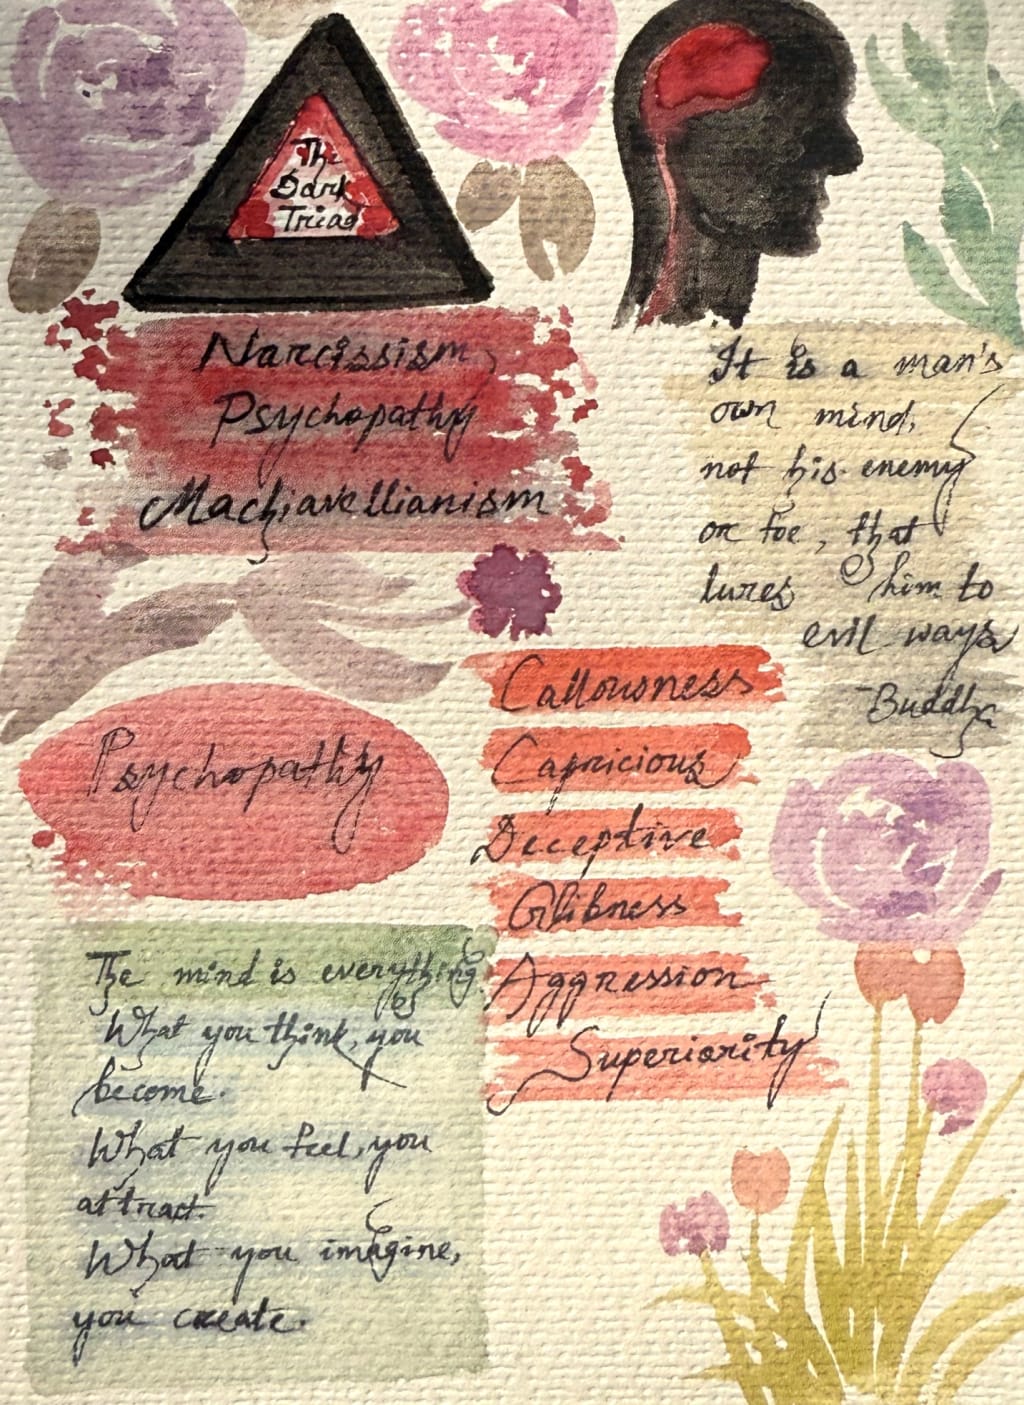 The
Dark
Triad
Narcissism,
Psychopathy
Machiavellianism
It is a man's
own mind,
not his enemy
or foe, that
lures him to
evil ways
-Buddha
Psychopathy
Callousness
Capricious
Deceptive
Glibness
Aggression
Superiority
The mind is everything.
What you think, you
become.
What you feel, you
attract.
What you imagine,
you create.